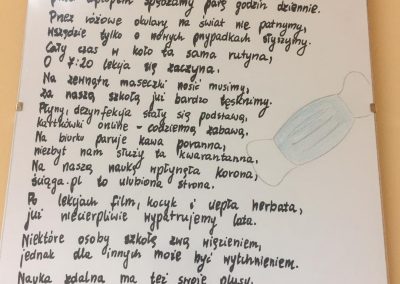 przed laptopem spędzamy parę godzin dziennie.
Przez różowe okulary na świat nie patrzymy,
Wszędzie tylko o nowych przypadkach słyszymy.
Cały czas w koło ta sama rutyna,
O 7:20 lekcja się zaczyna.
Na zewnątrz maseczki nosić musimy,
za naszą szkołą już bardzo tęsknimy.
Płyny, dezynfekcja stały się podstawą,
kartkówki online - codzienną zabawą.
Na biurku paruje kawa poranna,
niezbyt nam służy ta kwarantanna.
Na naszą naukę wpłynęła korona,
ściąga.pl to ulubiona strona.
Po lekcjach film, kocyk i ciepła herbata,
już niecierpliwie wypatrujemy lata.
Niektóre osoby szkołę zwą więzieniem,
jednak dla innych może być wytchnieniem.
Nauka zdalna ma też swoje plusy,